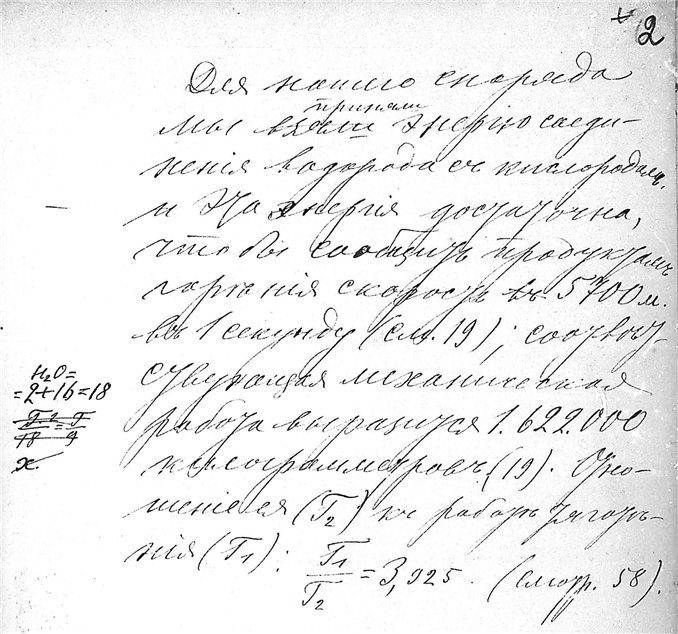 2
Для нашего снаряда
приняли
мы взяли энергію соеди-
ненія водорода съ кислородомъ.
и эта энергія достаточна,
чтобы сообщить продуктамъ
горѣнія скорость въ 5700 м.
въ 1 секунду (см. 19); соотвѣт-
H₂O=
=2+16=18
ствующая механическая
работа выразится 1.622.000
килограмметровъ (19). Отно-
шеніе ея (T₂) къ работѣ тяготѣ-
нія (T₁): T₁/T₂=3,925. (см. 58).